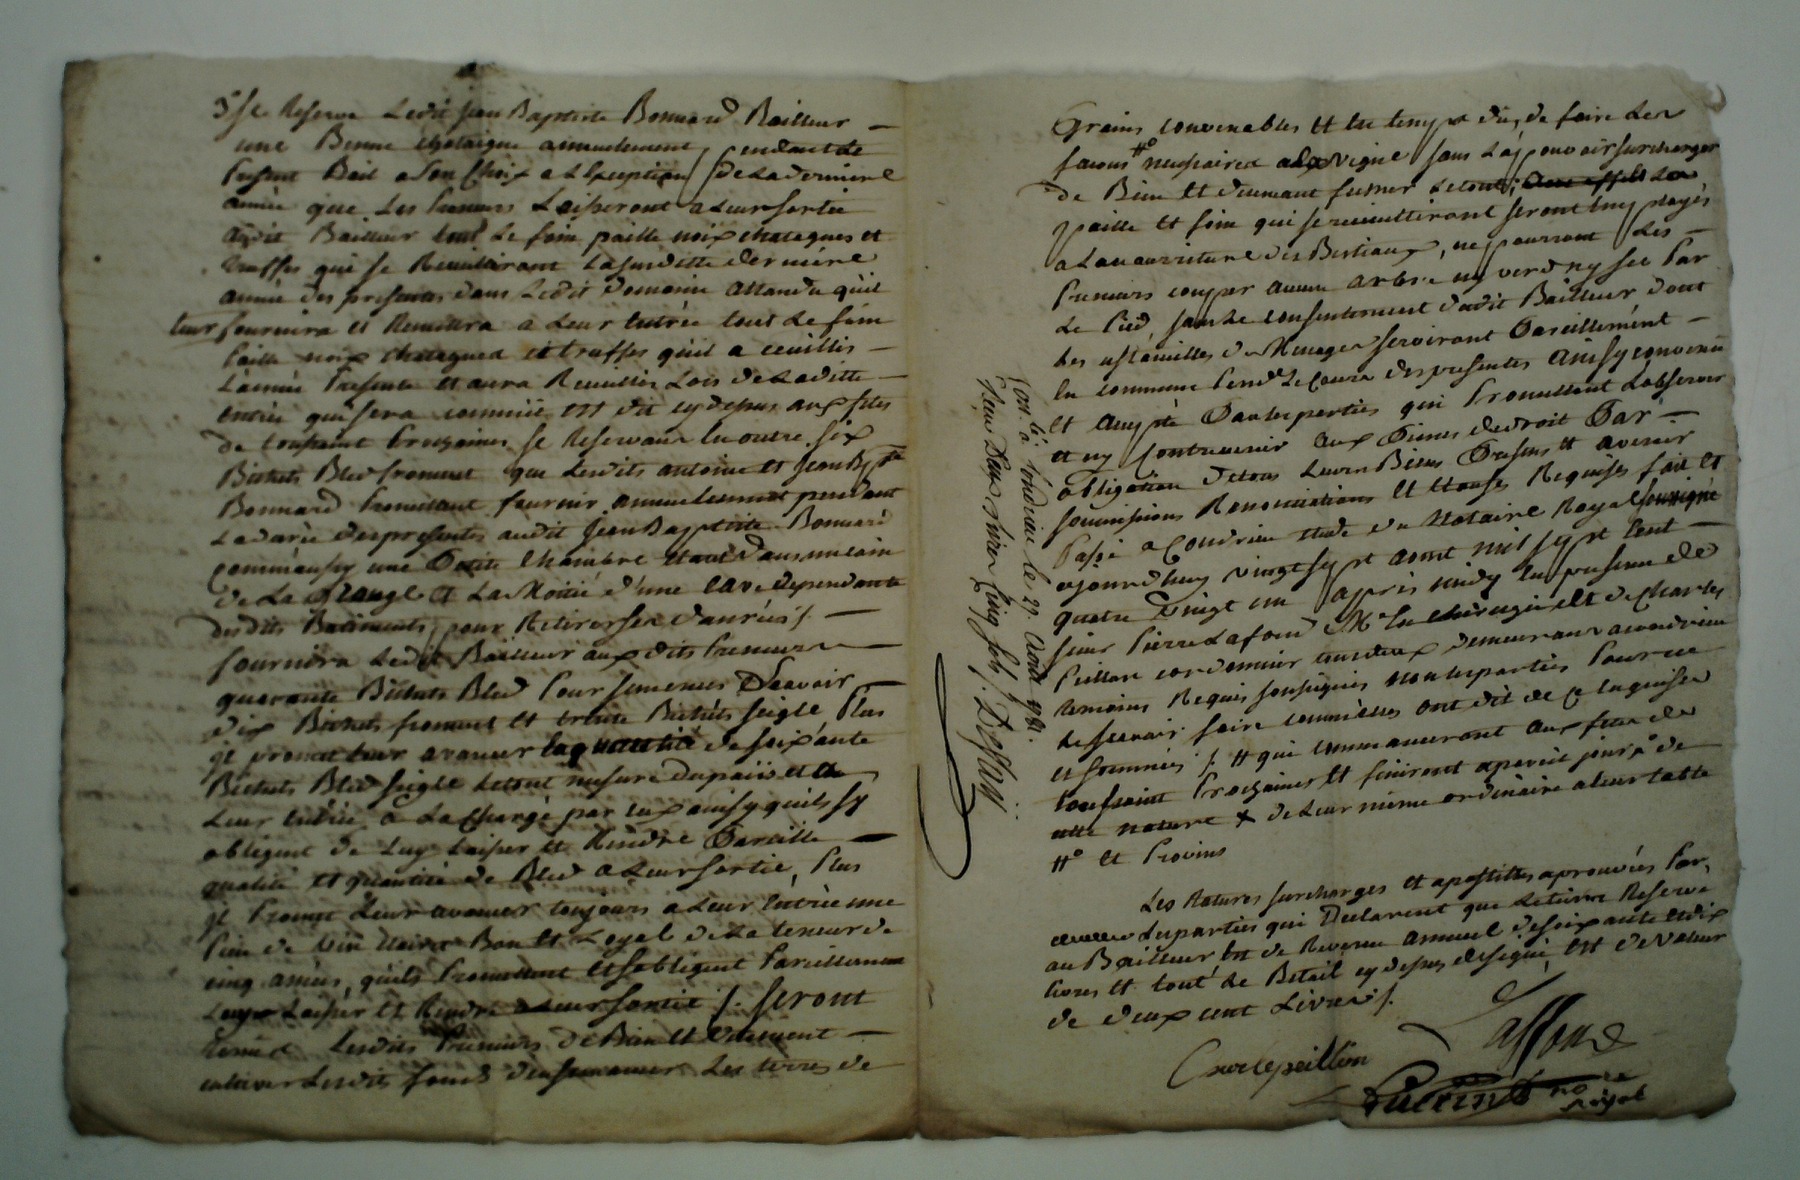 3° se Reserve Ledit jean Baptiste Bonnard Bailleur
une Benne chataigne annuelement pendant le
present Bail a son Choix a L'exception de La derniere
année que Les preneurs Laisseront a Leur sortie
audit Bailleur tout Le foin paille noix chatagnes et
truffes qui se Recueuliront La susditte derniere
année des presentes dans Ledit domaine attandu qu'il
leur fournira et Remettra a Leur Entrée tout Le foin
Paille noix chatagnes et truffes qu'il a ceuillis
L'année Presente et aura Recuillis Lors de Laditte
entrée qui sera comme il est dit cy dessus aux fetes
de toussaint Prochaines se Reservant En outre six
Bichets Bled froment que Lesdits antoine et jean Bpte
Bonnard Promettent fournir annuelement pendant
La durée des presentes audit jean Baptiste Bonnard
comm'aussy une Petite Chambre etant dans un coin
de La Grange et La Moitié d'une cave dependante
desdits Batiments, pour Retirer ses danrées /.
fournira Ledit Bailleur aux dits Preneurs
quarante Bichets Bled Pour semences Sçavoir
dix Bichets froment et trente Bichets seigle Plus
il promet leur avancer la quantité de soixante
Bichets Bled seigle Le tout mesure du païs et a
Leur Entrée a La Charge par Eux ainsy qu'ils s'y
obligent de Luy Laisser et Rendre Pareille
qualité et quantité de Bled a Leur sortie, Plus
il Promet Leur avancer toujours a Leur Entrée une
Piece de vin Bon et Loyal de La teneur de
cinq anées, qu'ils Promettent et s'obligent Pareillement
Luy Laisser et Rendre a Leur sortie /. seront
tenus Lesdits Preneurs de Bien et duement
cultiver Lesdits fonds d'ensemancer Les terres de
Grains convenables et en temps dus, de faire Les
facons #° necessaires a La vigne sans La pouvoir surcharger
de Bien et duement fumer Le tout,
paille et foin qui se recueuilliront seront employés
a La nourriture des Bestiaux, ne pourront Les
Preneurs couper aucun arbre ny verd ny sec Par
Le Pied, sans Le consentement dudit Bailleur dont
Les ustancilles de Menage serviront Pareillement
En commun Pendt Le Cours des presentes ainsy convenu
et accepté Par Les parties qui Promettent L'observer
et n'y Contrevenir aux Peines de droit Par
obligation de tous Leurs Biens Presens et avenir
soumissions Renonciations et Clauses Requises fait et
Passé a Condrieu etude du Notaire Royal soussigné
ajourd'huy vingt sept aout mil sept cent
quatre vingt un après midy En presence de
sieur Pierre Lafond Me En chirurgie et de Charles
Peillon cordonnier tous deux demeurans a Condrieu
temoins Requis soussignés non Les parties Pour ne
Le sçavoir faire comm'elles ont dit de ce Enquises
et sommées /. # qui commanceront aux fetes de
toussaint Prochaines et finiront a pareil jour #° de
cette nature x de Leur meme ordinaire a Leur table
#° et Provins
Les Ratures surcharges et apostilles aprouvées Par
Les parties qui Declarent que Le tiers Reservé
au Bailleur Est de Revenu annuel de soixante et dix
Livres et tout Le Betail cy dessus designé Est de valeur
de deux cent Livres /.
Laffond
Charle peillon
Guerin no re
Royal
Con lé a Condrieu le 27. Aout 1781.
Reçu Deux Livres Cinq sols /. Deflassis